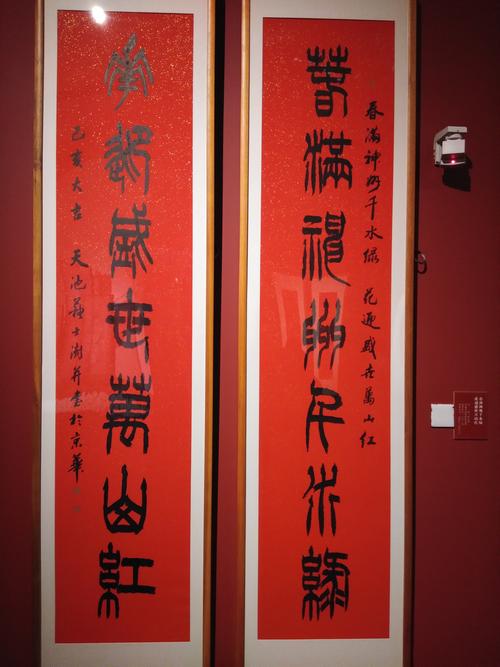 春滿神州千水綠
春滿神州千水綠 花迎盛世萬山紅
花迎盛世萬山紅
己亥大吉 天池蘇士澍并書於京華